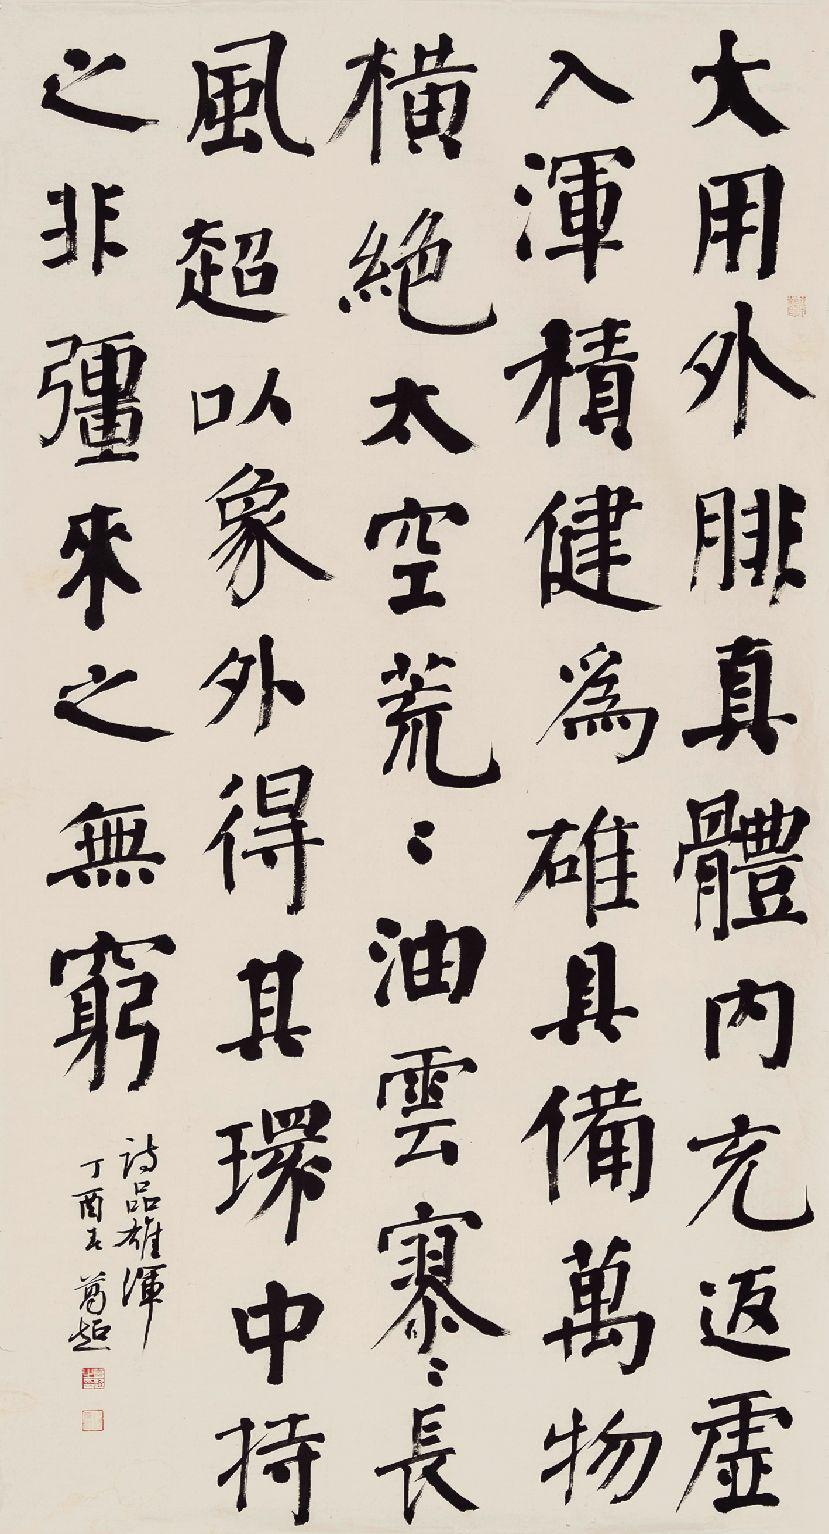 大用外腓真體內充返虛
入渾積健為雄具備萬物
橫絕太空荒〻油雲寥〻長
風超以象外得其環中持
之非彊來之無窮
詩品雄渾
丁酉春